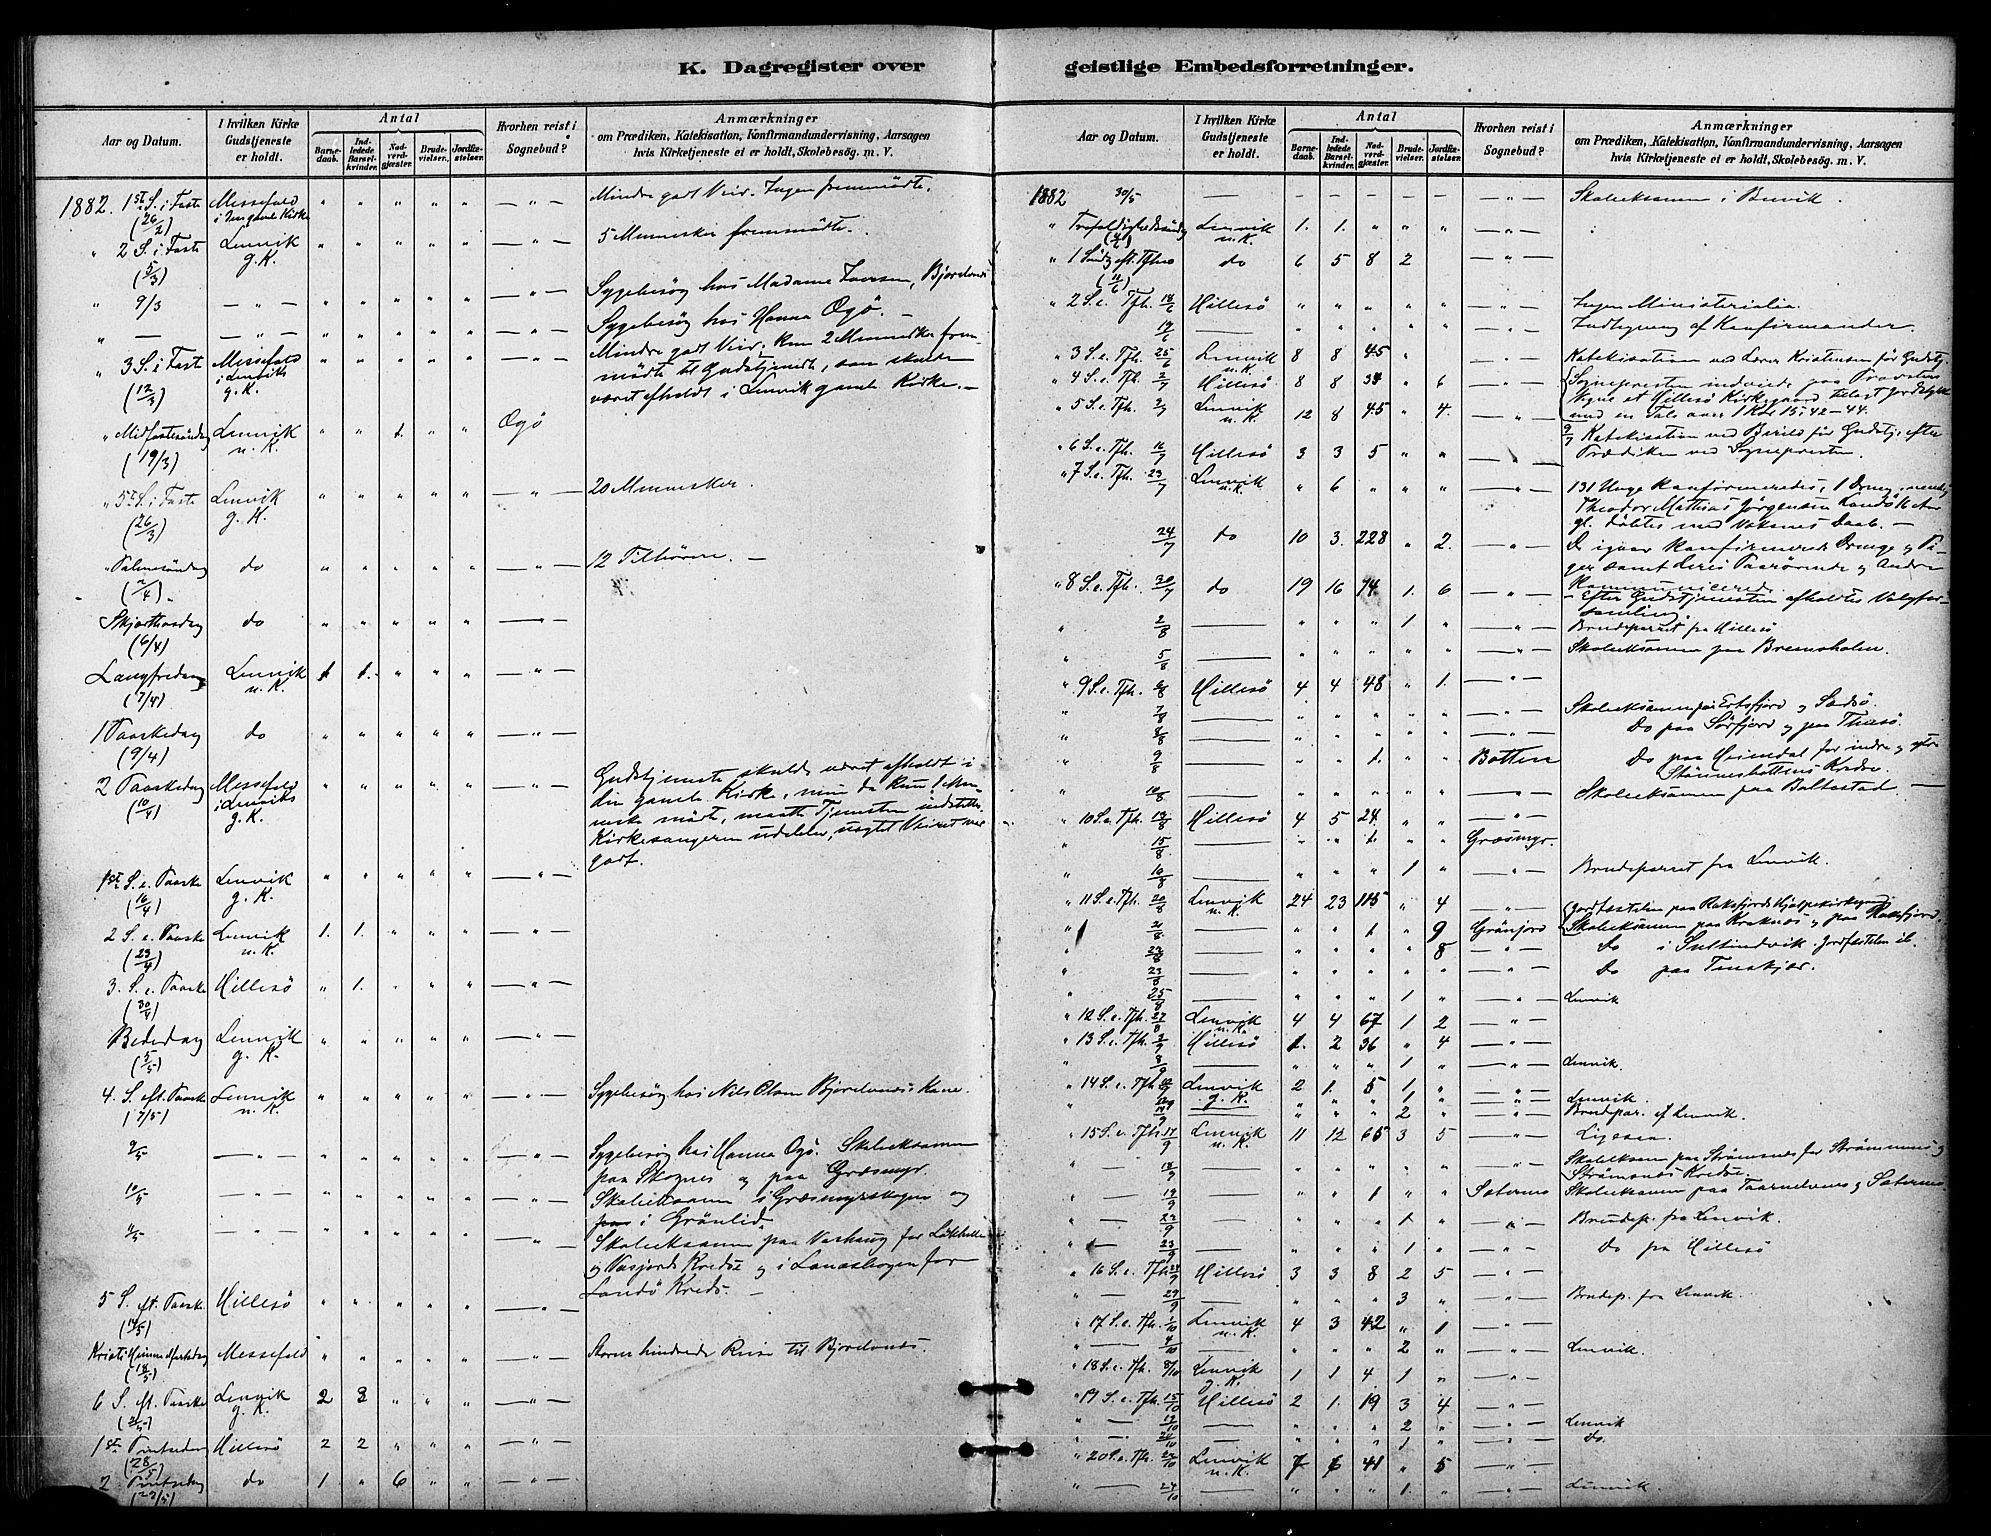 K. Dagregister over geistlige Embedsforretninger.
Aar og Datum.
I hvilken Kirke Gudstjeneste er holdt.
Antal
Barnedaab.
Indledede Barselkvinder.
Nadverdgjæster.
Brudevielser.
Jordfæstelser.
Hvorhen reist i Sognebud?
Anmærkninger
om Prædiken, Katekisation, Konfirmandundervisning, Aarsagen
hvis Kirketjeneste ei er holdt, Skolebesög. m. V.
1882. 1st S. i Faste (26/2) Messefald i den gamle Kirke " " " " " — " — Mindre godt Veir. Ingen fremmödte.
" 2 S. i Faste (5/3) Lenvik g. K. " " " " " — " — 5 Mennesker fremmödte.
" 9/3 — " — " " " " " — " — Sygebesög hos Madame
" — — " — " " " " " — " — Sygebesög hos Hanna Ogö. —
" 3 S. i Faste (12/3) Messefald i Lenviks g. K. " " " " " — " — Mindre godt Veir. Kun 2 Mennesker frem-
mödte til Gudstjeneste, som skulde
været afholdt i Lenvik gamle Kirke. —
" Midfastesöndag (19/3) Lenvik n. K. " " 1. " " Ogö
" 5te S. i Faste (26/3) Lenvik g. K. " " " " " — " — 20 Mennesker.
" Palmesöndag (2/4) do " " " " " — " — 12 Tilhörere. —
Skjærthorsdag (6/4) do " " " " " — " —
Langfredag (7/4) Lenvik n. K. 1 1. " " " — " —
1 Paaskedag (9/4) do " " " " " — " —
2 Paaskedag (10/4) Messefald i Lenviks g. K. " " " " " — " — Gudstjeneste skulde været afholdt i
den gamle Kirke, men da kun 1 Men-
neske mödte, maatte Tjenesten indstilles,
Kirkesangeren udeblev, uagtet Veiret var
godt.
1st S. e. Paaske (16/4) Lenvik g. K. " " " " " — " —
2 S. e. Paaske (23/4) Lenvik n. K. 1. 1. " " " — " —
3. S. e. Paaske (30/4) Hillesö " 1. " " " — " —
Bededag (5/5) Lenvik g. K. " " " " " — " —
4. S. eft. Paaske (7/5) Lenvik n. K. " " " " " — " — Sygebesög hos Nils Olsen Bjorelvnes's Kone.
9/5 — " — " " " " " — " — Sygebesög hos Hanna Ogö. Skoleeksamen
paa Skognes og paa Græsmyr.
10/5 — " — " " " " " — " — Skoleeksamen i Græsmyrskogen og
paa i Grönlid.
11/5 — " — " " " " " — " — Skoleeksamen paa Vorhaug for
og Kreds og i for
Landö Kreds. —
5 S. eft. Paaske (14/5) Hillesö " " " " " — " —
Kristi Himmelfartsdag (18/5) Messefald " " " " " — " — Storm hindrede Reise til Bjorelvnes.
6 S. eft. Paaske (21/5) Lenvik g. K. 2 3 " " " — " —
1st Pintsedag (28/5) Hillesö 2 2 " " " — " —
2 Pintsedag (29/5) do 1 " 6 " " — " —
Aar og Datum.
I hvilken Kirke Gudstjeneste er holdt.
Antal
Barnedaab.
Indledede Barselkvinder.
Nadverdgjæster.
Brudevielser.
Jordfæstelser.
Hvorhen reist i Sognebud?
Anmærkninger
om Prædiken, Katekisation, Konfirmandundervisning, Aarsagen
hvis Kirketjeneste ei er holdt, Skolebesög. m. V.
1882 30/5 — — — — — — — " — Skoleeksamen i
" Trefoldighedssöndag (4/6) Lenvik n. K. 1. 1. " " " — " —
" 1 Söndg eft. Tfh. (11/6) do 6 5 8 2 — " —
" 2 S. e. Tfh. 18/6 Hillesö " " " " " — " — Ingen Ministerialia.
19/6 — " " " " " — " — Indtegning af Konfirmander
" 3 S. e. Tfh. 25/6 Lenvik n. K. 8 8 45 " — " — Katekisation ved Lærer Kristensen för Gudstj.
" 4 S. e. Tfh. 2/7 Hillesö 8 8 34 " 6 — " — Sognepresten indviede paa Provstens
Vegne et Hillesö Kirkegaard tillagt Jordstykke
med en Tale over 1 Kor. 15: 42–44.
" 5 S. e. Tfh. 9/7 Lenvik n. K. 12 8 45 " 4. — " — 9/7 Katekisation ved för Gudstj. efter
Prædiken ved Sognepresten.
" 6 S. e. Tfh. 16/7 Hillesö 3 3 5 " " — " —
" 7 S. e. Tfh. 23/7 Lenvik n. K. " 6 " " " — " — 131 Unge Konfirmeredes, 1 Dreng, nemlig
Theodor Mathias Jörgensen
döbtes med Voksnes Daab. —
24/7 do 10 3. 228 " 2. — " — De igaar Konfirmerede Drenge og Pi-
ger samt deres Paarörende og Andre
Kommunicerede
" 8 S. e. Tfh. 30/7 do 19 16 74 1. 6 — " — – Efter Gudstjenesten afholdtes Valgfor-
samling
" 2/8 — " " " 1 " — " — Brudeparret fra Hillesö
" 5/8 — " " " " " — " — Skoleeksamen paa Bremsholen.
" 9 S. e. Tfh. 6/8 Hillesö 4 4 48 " 1. — " —
" 7/8 — " " " " " — " — Skoleeksamen paa Ersfjord og
" 8/8 — " " " " " Do paa Sörfjord og paa
" 9/8 — " " 1. " " Botten Do paa Meiendal for indre og ytre
Kredse.
" 10/8 — " " " " " — " — Skoleeksamen paa Baltestad. —
" 10 S. e. Tfh. 13/8 Hillesö 4 5 24 " " — " —
" 15/8 " " 1. " " Græsmyr.
" 16/8 " " " 1 " Brudeparret fra Lenvik.
" 11 S. e. Tfh. 20/8 Lenvik n. K. 24 23 115 " 4 — " — Jordfæstelse paa Rossfjords Hjælpekirkegaard
" 21/8 — " " 1 " 9 Grönfjord Skoleeksamen paa Kraknes og paa Rossfjord.
" 22/8 — " " " " 8 — " — Do i Sultindvik. Jordfæstelse ib.
" 23/8 — " " " " " — " — Do paa Finskjær.
" 25/8 — " " " 1 " — " — Lenvik
" 12 S. e. Tfh. 27/8 Lenvik n. K. 4 4 67 1 2 — " —
" 13 S. e. Tfh. 3/9 Hillesö 1. 2 36 " 4 — " —
" 8/9 — " " " 1 " — " — Lenvik.
" 14 S. e. Tfh. 10/9 Lenvik g. K. 2 1. 5 1. " — " —
" 12/9 " " " 1 " — " — Lenvik.
14/9 — " " " 2 " — " — Brudepar. af Lenvik.
" 15 S. e. Tfh. 17/9 Lenvik n. K. 11 12 65 3 5 — " — Ligesaa.
" — 18/9 — " " " " " — " — Skoleeksam. paa Strömsnes for Strömmens og
Strömsnes Kredse
" — 19/9 — " " 1 " " Sæternes Skoleeksamen paa Taarnelvnes og Sæternes
" — 22/9 — " " " 1 " — " — Brudep. fra Lenvik.
" — 23/9 — " " " 1 " — " — do fra Hillesö
" 16 S. e. Tfh. 24/9 Hillesö 3 3 8 2 5 — " —
" — 29/9 — " " " 3 " — " — Brudep. fra Lenvik.
" 17 S. e. Tfh. 1/10 Lenvik n. K. 4 3 42 " 1 — " —
" — 4/10 — " " " 2 " — " — Lenvik.
" 18 S. e. Tfh. 8/10 Lenvik g. K. 1 1 4 1 " — " —
" 19 S. e. Tfh. 15/10 Hillesö 2 1. 19 3 4 — " —
" — 17/10 — " " " 2 " — " — Lenvik
" — 20/10 — " " " 1 " — " — Do.
" 20 S. e. Tfh. 22/10 Lenvik n. K. 7 6 41 " 5 — " —
" — 24/10 — " " " 1. " — " — Lenvik.